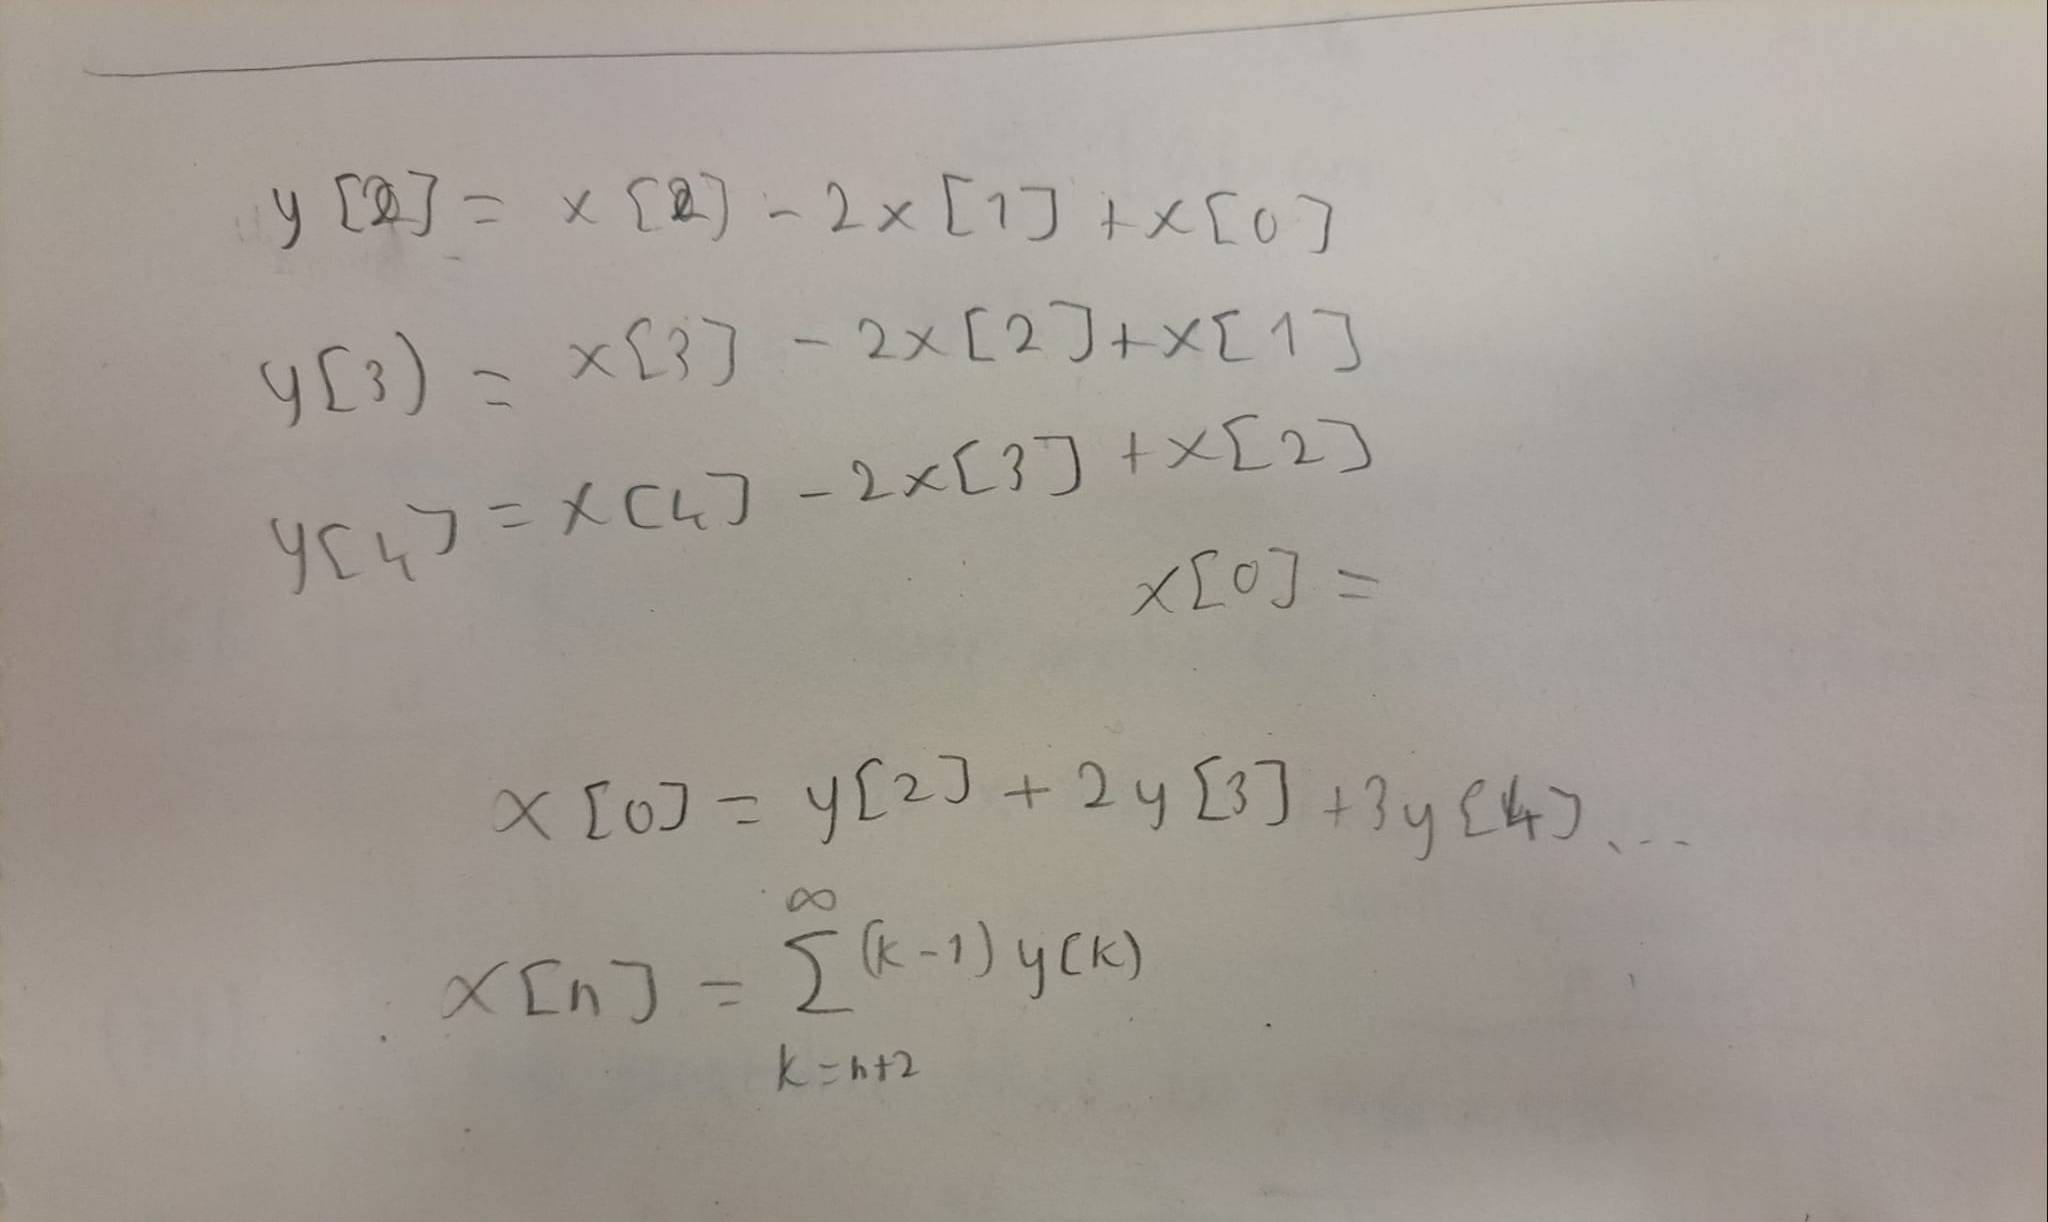 y[2] = x[2] - 2x[1] + x[0]
y[3) = x[3] - 2x[2] + x[1]
y[4] = x[4] - 2x[3] + x[2]
x[0] =
x[0] = y[2] + 2y[3] + 3y[4] ...
x[n] = ∑_{k=n+2}^{∞} (k-1) y[k)